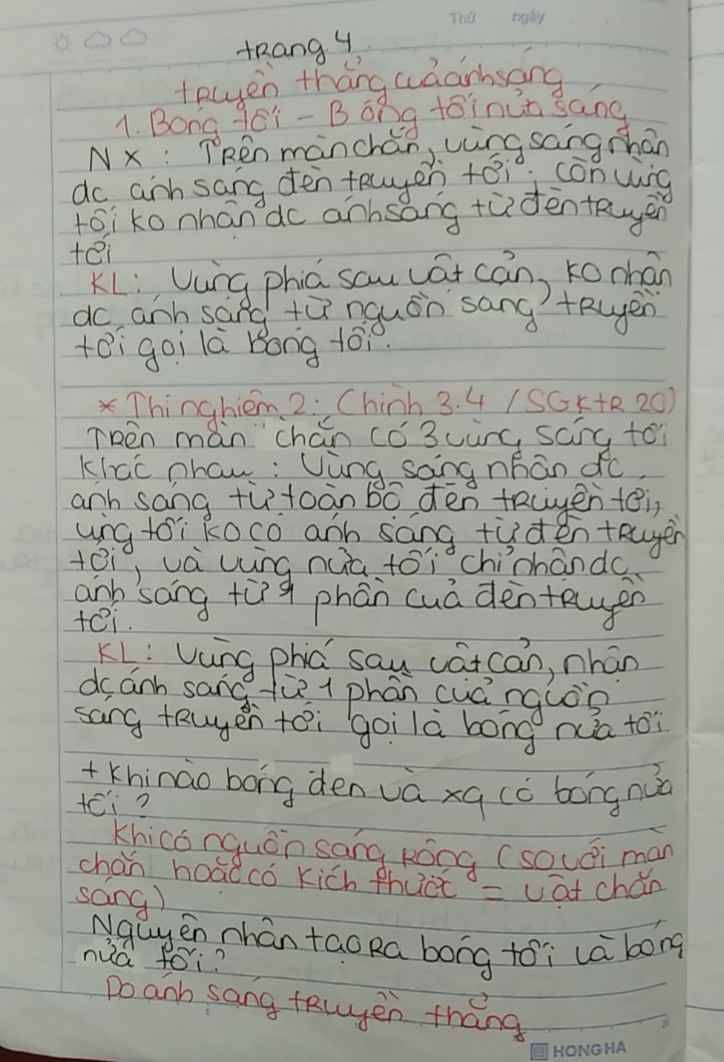 Thứ ngày
trang 4
truyền thẳng của ánh sáng
1. Bóng tối - Bóng tối nửa sáng
NX: Trên màn chắn, vùng sáng nhận
dc ánh sáng đèn truyền tới; còn vùng
tối ko nhận dc ánh sáng từ đèn truyền
tới
KL: Vùng phía sau vật cản, ko nhận
dc ánh sáng từ nguồn sáng truyền
tới gọi là bóng tối.
* Thí nghiệm 2: (hình 3.4 / SGK tr 20)
Trên màn chắn có 3 vùng sáng tối
khác nhau: Vùng sáng nhận dc
ánh sáng từ toàn bộ đèn truyền tới,
ùng tối ko có ánh sáng từ đèn truyền
tới, và vùng nửa tối chỉ nhận dc
ánh sáng từ 1 phần của đèn truyền
tới.
KL: Vùng phía sau vật cản, nhận
dc ánh sáng từ 1 phần của nguồn
sáng truyền tới gọi là bóng nửa tối
+ Khi nào bóng đen và xq có bóng nửa
tối?
Khi có nguồn sáng rộng (so với màn
chắn hoặc có kích thước = vật chắn
sáng)
Nguyên nhân tạo ra bóng tối và bóng
nửa tối?
Do ánh sáng truyền thẳng
HONG HA